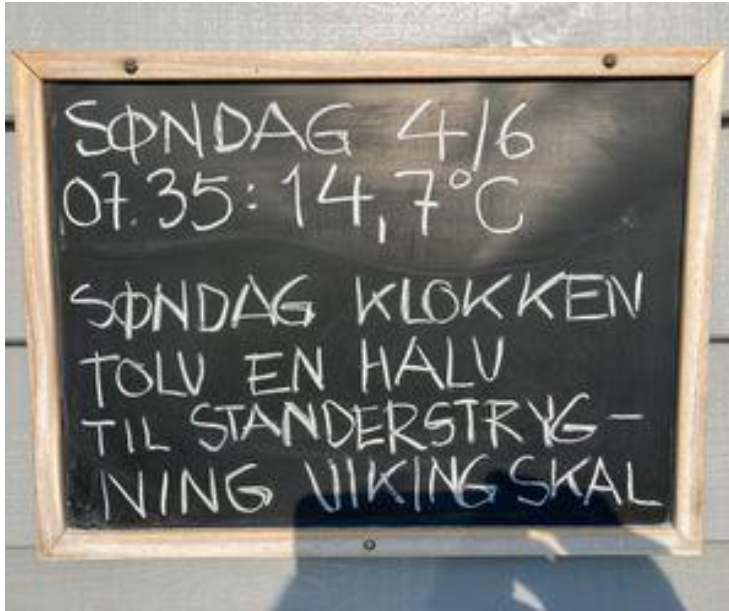 SØNDAG 4/6
07.35: 14,7°C
SØNDAG KLOKKEN
TOLV EN HALV
TIL STANDERSTRYG-
NING VIKING SKAL